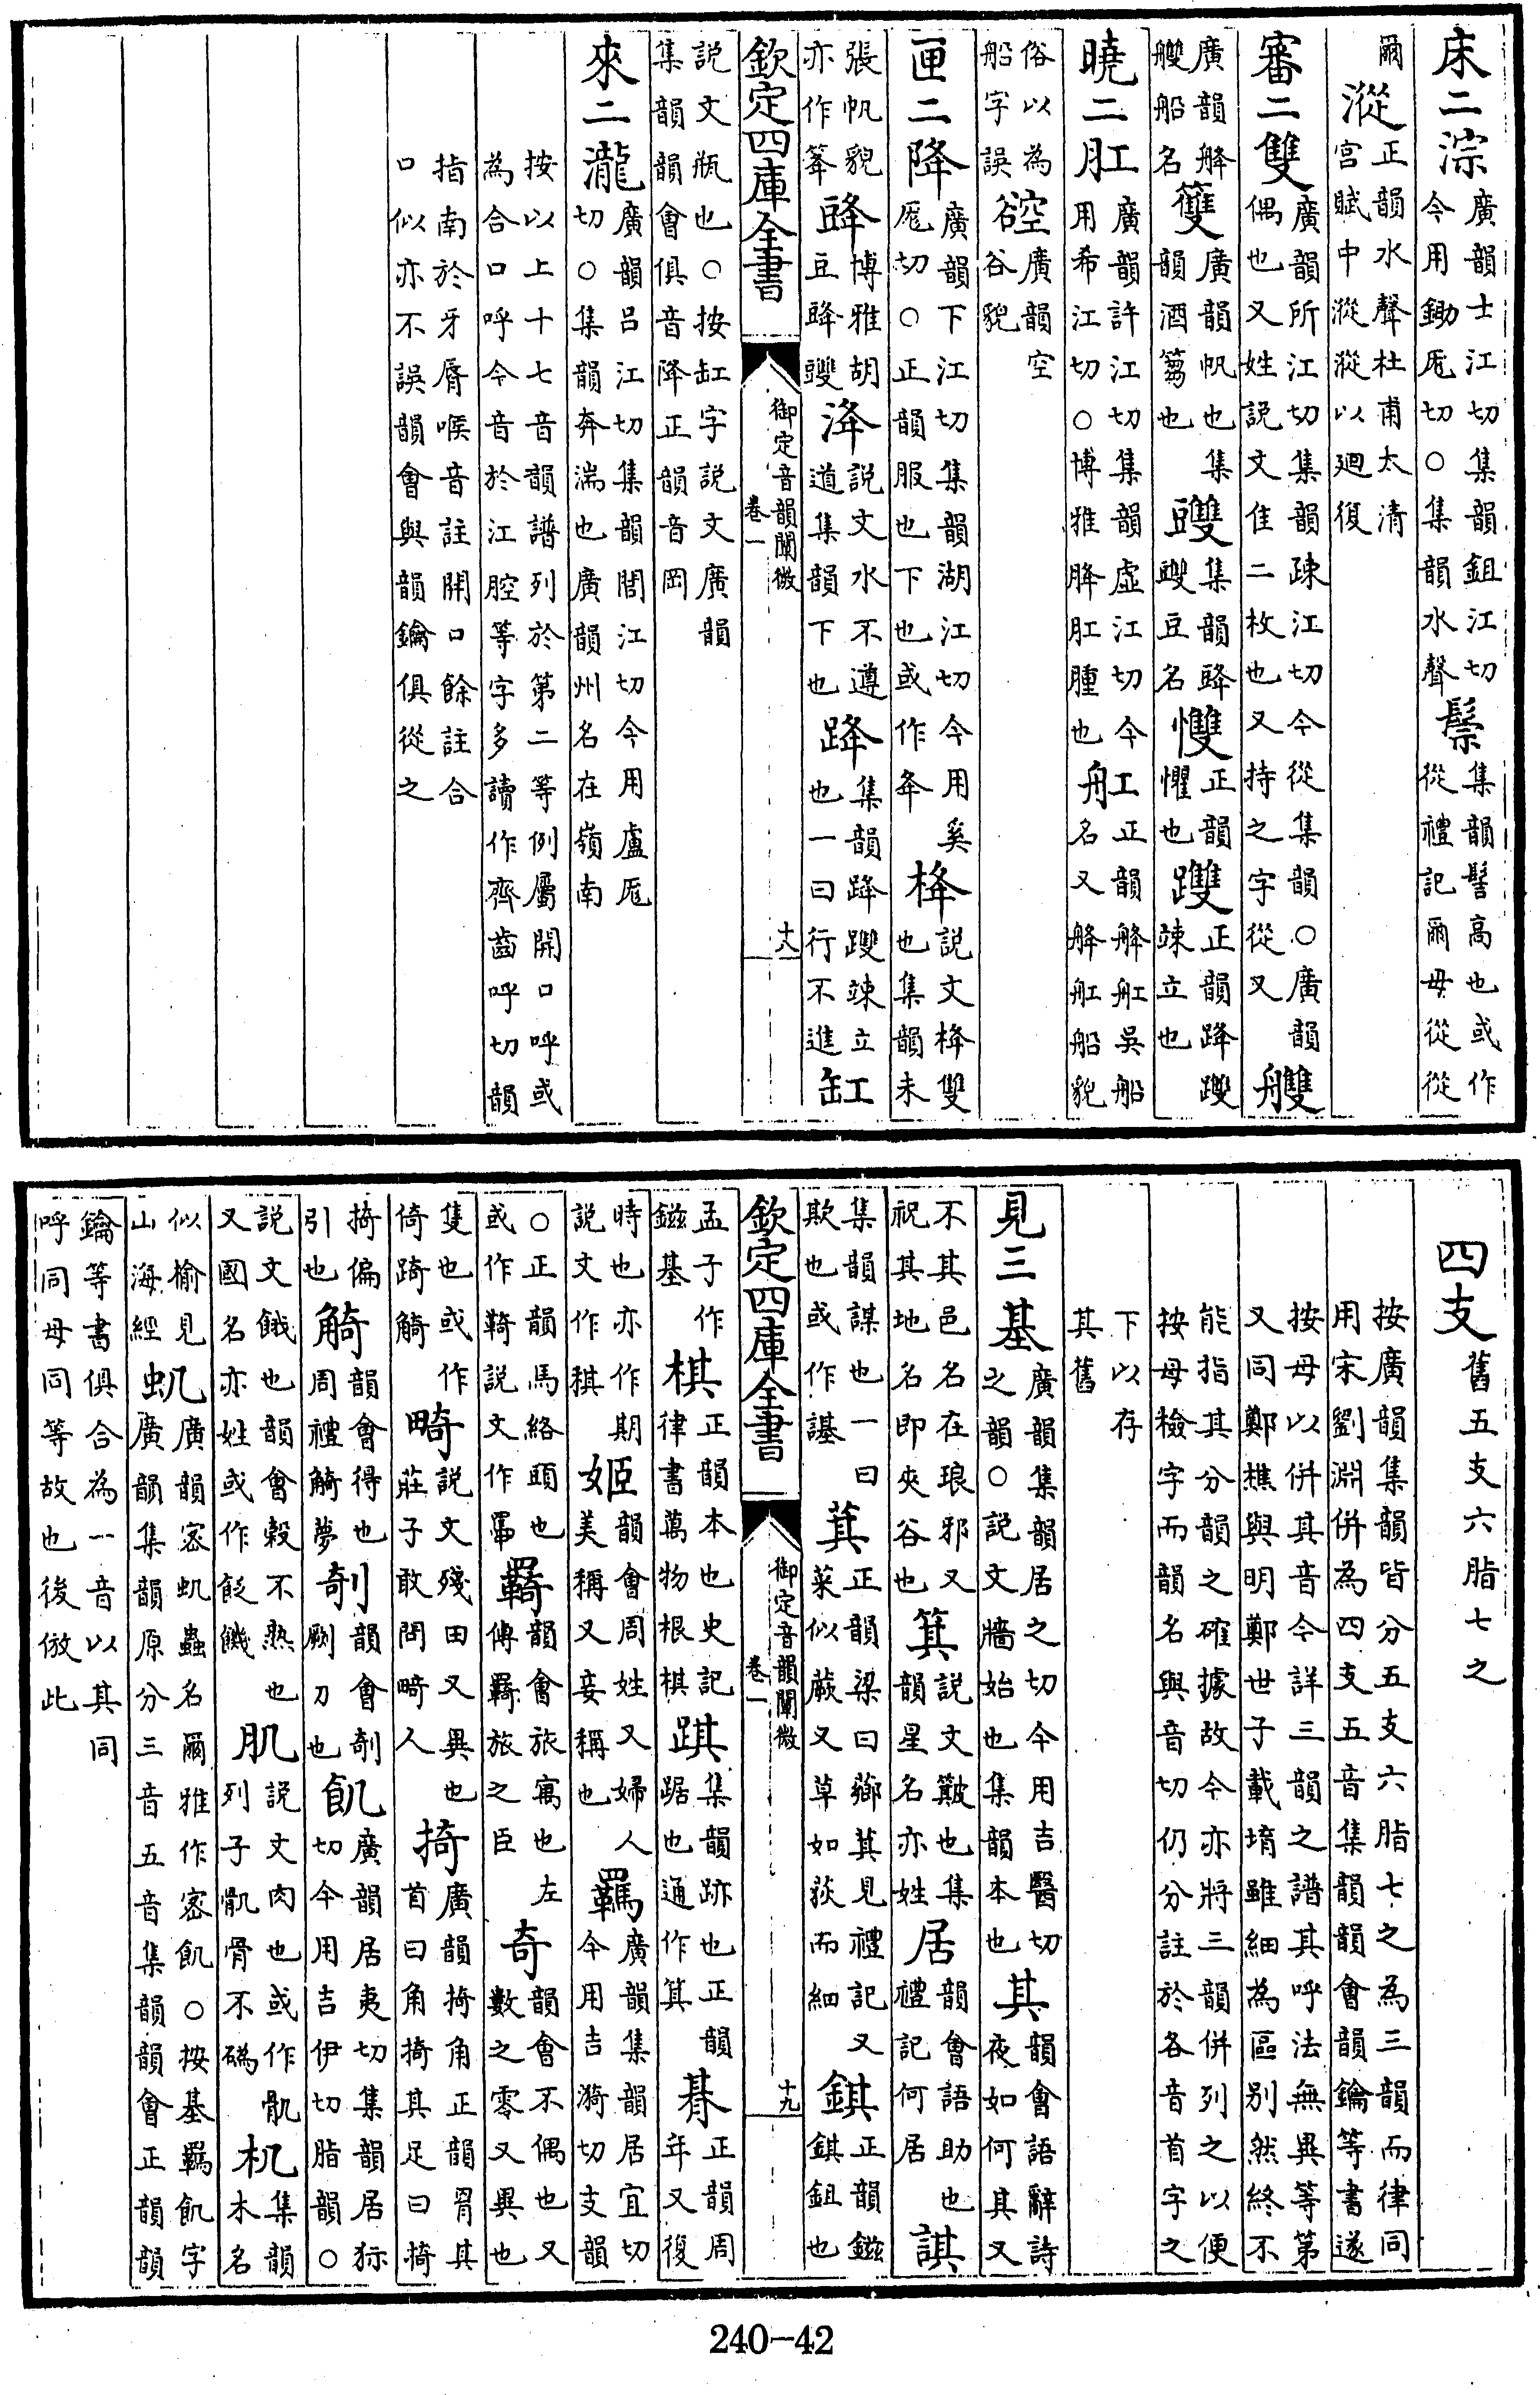 床二淙廣韻士江切集韻鉏江切今用鋤厖切○集韻水聲鬃集韻髻高也或作從禮記爾毋從從
爾漎正韻水聲杜甫太清宮賦中漎漎以廻復
審二雙廣韻所江切集韻疎江切今從集韻○廣韻偶也又姓説文隹二枚也又持之字從又艭
廣韻舽艭船名䉶廣韻帆也集韻酒篘也䝄集韻䜶䝄豆名㦼正韻懼也𨇯正韻䟫𨇯竦立也
曉二肛廣韻許江切集韻虛江切今用希江切○博雅胮肛腫也舡正韻舽舡吳船名又舽舡船貌
俗以為船字誤谾廣韻空谷貌
匣二降廣韻下江切集韻湖江切今用奚厖切○正韻服也下也或作夅栙説文栙雙也集韻未
張帆貌亦作䇨䜶博雅胡豆䜶䝄洚説文水不遵道集韻下也䟫集韻䟫𨇯竦立也一曰行不進缸
欽定四庫全書 御定音韻闡微 卷一 十八
説文瓶也○按缸字説文廣韻集韻韻會俱音降正韻音岡
來二瀧廣韻呂江切集韻閭江切今用盧厖切○集韻奔湍也廣韻州名在嶺南
按以上十七音韻譜列於第二等例屬開口呼或為合口呼今音於江腔等字多讀作齊齒呼切韻
指南於牙脣喉音註開口餘註合口似亦不誤韻會與韻鑰俱從之
四支舊五支六脂七之
按廣韻集韻皆分五支六脂七之為三韻而律同用宋劉淵併為四支五音集韻韻會韻鑰等書遂
按母以併其音今詳三韻之譜其呼法無異等第又同鄭樵與明鄭世子載堉雖細為區别然終不
能指其分韻之確據故今亦將三韻併列之以便按母檢字而韻名與音切仍分註於各音首字之
下以存其舊
見三基廣韻集韻居之切今用吉醫切之韻○説文牆始也集韻本也其韻會語辭詩夜如何其又
不其邑名在琅邪又祝其地名即夾谷也箕説文簸也集韻星名亦姓居韻會語助也禮記何居諆
集韻謀也一曰欺也或作諅萁正韻梁曰薌萁見禮記又菜似蕨又草如荻而細錤正韻鎡錤鉏也
欽定四庫全書 御定音韻闡微 卷一 十九
孟子作鎡基棋正韻本也史記律書萬物根棋踑集韻跡也正韻踞也通作箕朞正韻周年又復
時也亦作期説文作稘姬韻會周姓又婦人美稱又妾稱也羈廣韻集韻居宜切今用吉漪切支韻
○正韻馬絡頭也或作鞿説文作𩍟羇韻會旅寓也左傳羇旅之臣奇韻會不偶也又數之零又異也
隻也或作倚踦觭畸説文殘田又異也莊子敢問畸人掎廣韻掎角正韻罥其首曰角掎其足曰掎
掎偏引也觭韻會得也周禮觭夢剞韻會剞劂刀也飢廣韻居夷切集韻居狋切今用吉伊切脂韻○
説文餓也韻會穀不熟也又國名亦姓或作飢饑肌説文肉也或作肌列子肌骨不䃣机集韻木名
似榆見山海經虮廣韻密虮蟲名爾雅作密飢○按基羈飢字廣韻集韻原分三音五音集韻韻會正韻韻
鑰等書俱合為一音以其同呼同母同等故也後倣此
240-42